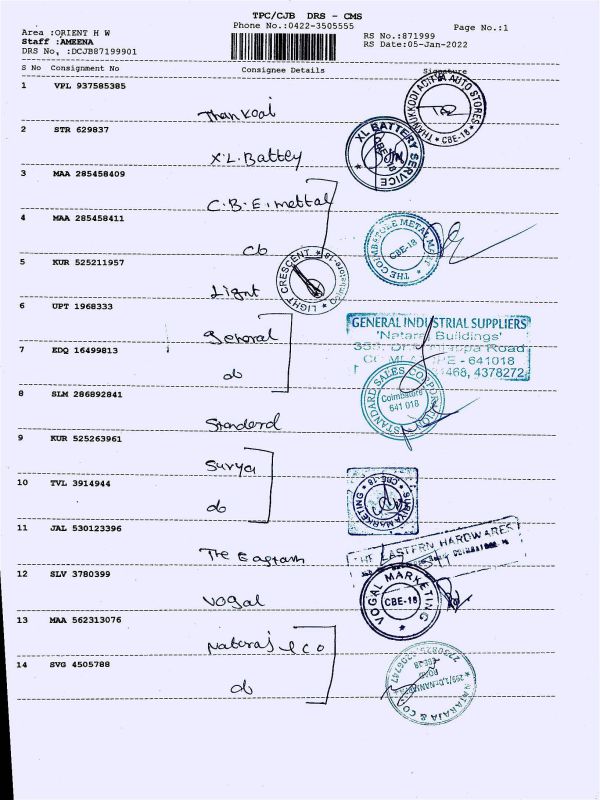 TPC/CJB DRS - CMS
Phone No.:0422-3505555
Page No.:1
Area :ORIENT H W
Staff :AMEENA
DRS No, :DCJB87199901
RS No.:871999
RS Date:05-Jan-2022
S No Consignment No Consignee Details Signature
1 VPL 937585385
Thankodi
THANUKKODI AUTO STORES
* CBE-18 *
2 STR 629837
X.L. Battey
XL BATTERY SERVICE
CBE-18
3 MAA 285458409
C.B.E. mettal
4 MAA 285458411
do
THE COIMBATORE METAL MART
CBE-18
5 KUR 525211957
Light
LIGHT CRESCENT
Coimbatore-18
6 UPT 1968333
general
GENERAL INDUSTRIAL SUPPLIERS
'Nataraj Buildings'
Road
641018
1468, 4378272
7 EDQ 16499813
do
8 SLM 286892841
Standerd
STANDARD SALES CORPORATION
Coimbatore
641 018
9 KUR 525263961
Surya
10 TVL 3914944
do
SURYA MARKETING
CBE-18
11 JAL 530123396
The Eastern
THE EASTERN HARDWARES
12 SLV 3780399
Vogal
VOGAL MARKETING
CBE-18
13 MAA 562313076
Nataraj & co
14 SVG 4505788
do
NATARAJA & CO.
ROAD
CBE-18